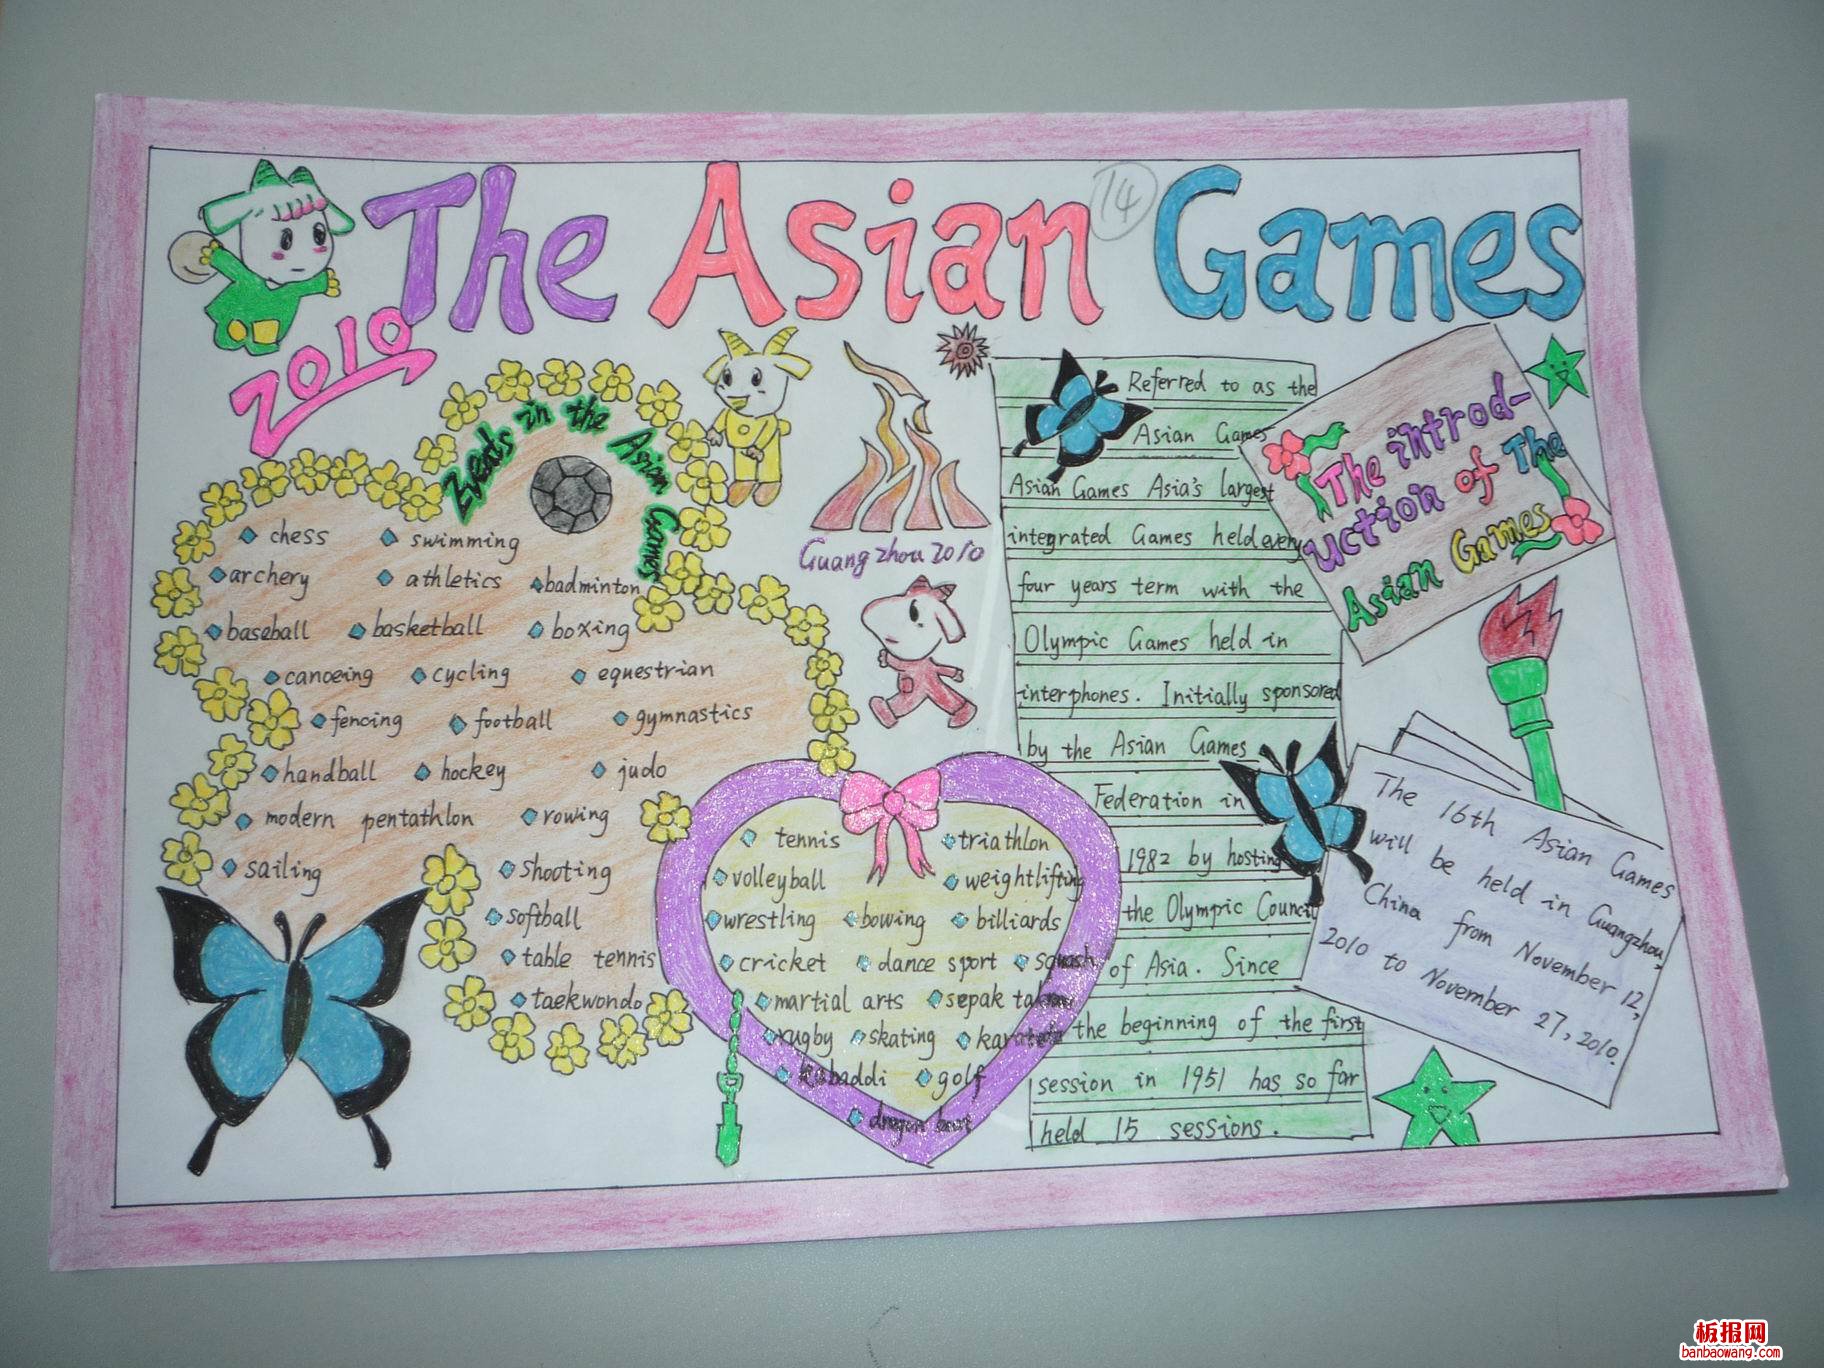 The Asian Games
14
2010
Events in the Asian Games
chess swimming
archery athletics badminton
baseball basketball boxing
canoeing cycling equestrian
fencing football gymnastics
handball hockey judo
modern pentathlon rowing
sailing shooting
softball
table tennis
taekwondo
Guangzhou 2010
tennis triathlon
volleyball weightlifting
wrestling bowing billiards
cricket dance sport squash
martial arts sepak
rugby skating
kabaddi golf
dragon boat
Referred to as the
Asian Games
Asian Games Asia's largest
integrated Games held every
four years term with the
Olympic Games held in
interphones. Initially sponsored
by the Asian Games
Federation in
1982 by hosting
the Olympic Council
of Asia. Since
the beginning of the first
session in 1951 has so far
held 15 sessions.
The introd-
uction of The
Asian Games
The 16th Asian Games
will be held in Guangzhou,
China from November 12,
2010 to November 27, 2010.
板报网
banbaowang.com